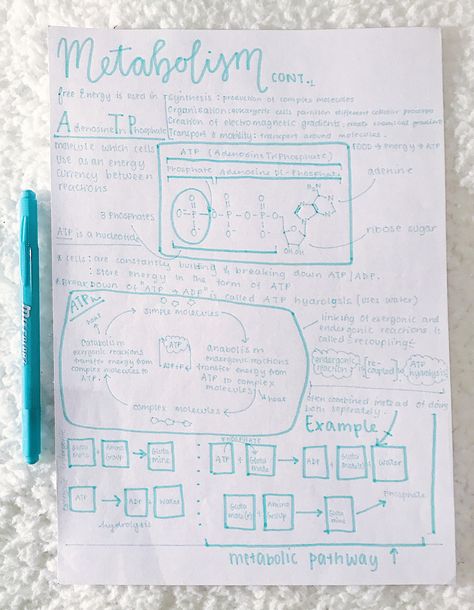 Metabolism
CONT..
free Energy is used in
synthesis: production of complex molecules
Organisation: eukaryotic cells partition different cellular processes
Creation of electromagnetic gradients: chemical gradients
Transport & mobility: transport around molecules.
Adenosine TriPhosphate
molecule which cells
use as an energy
currency between
reactions
FOOD → Energy → ATP
ATP (Adenosine TriPhosphate)
Phosphate Adenosine Di-Phosphate
adenine
3 Phosphates
ribose sugar
OH OH
ATP is a nucleotide
cells: are constantly building & breaking down ATP/ADP.
: store energy in the form of ATP
Breakdown of "ATP → ADP" is called ATP hydrolysis (uses water)
ATP
simple molecules
heat
Catabolism
exergonic reactions
transfer energy from
complex molecules to
ATP.
ATP
ADP+P
anabolism
endergonic reactions
transfer energy from
ATP to complex
molecules
heat
complex molecules
linking of exergonic and
endergonic reactions is
called "recoupling"
endergonic reaction
[re-coupled to]
ATP hydrolysis
often combined instead of doing
both seprately.
Example
Amino Group → Gluta mine
ATP → ADP + water
hydrolysis
phosphate
ATP + Gluta mate → ADP + Water
Phosphate
Amino Group → Gluta
metabolic pathway ↑